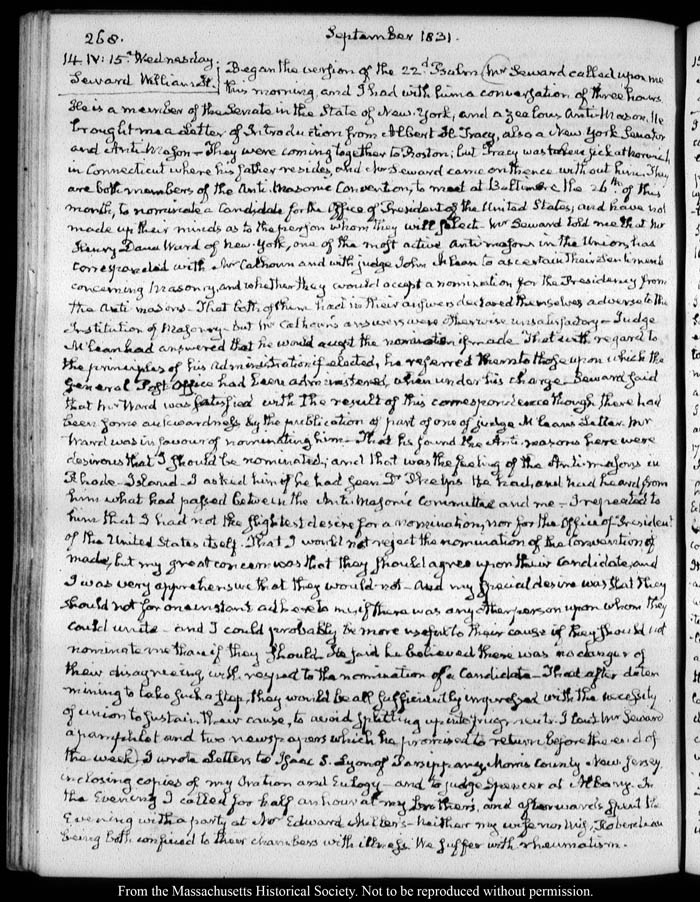 268.
September 1831.
14. IV: 15. Wednesday
Seward William H.
Began the version of the 22d Psalm. Mr Seward called upon me
this morning, and I had with him a conversation of three hours
He is a member of the Senate in the State of New-York, and a zealous Anti-Mason. He
brought me a Letter of Introduction from Albert H. Tracy, also a New York Senator
and Anti-Mason — They were coming together to Boston; but Tracy was taken sick at Norwich
in Connecticut where his father resides, and Mr Seward came on thence without him. They
are both members of the Anti-Masonic Convention, to meet at Baltimore the 26th of this
month, to nominate a Candidate for the Office of President of the United States, and have not
made up their minds as to the person whom they will select — Mr Seward told me that Mr
Henry Dana Ward of New-York, one of the most active Antimasons in the Union, has
corresponded with Mr Calhoun and with judge John McLean to ascertain their sentiments
concerning Masonry, and whether they would accept a nomination for the Presidency from
the Anti masons — That both of them had in their answers declared themselves adverse to the
Institution of Masonry — but Mr Calhoun's answers were otherwise unsatisfactory — Judge
McLean had answered that he would accept the nomination if made. That with regard to
the principles of his Administration if elected, he referred them to those upon which the
General Post Office had been administered, when under his charge — Seward said
that Mr Ward was satisfied with the result of this correspondence though there had
been some awkwardness by the publication of part of one of judge McLean's Letters. Mr
Ward was in favour of nominating him — That he found the Anti-masons here were
desirous that I should be nominated; and that was the feeling of the Anti-masons in
Rhode-Island — I asked him if he had seen Dr Phelps. He had, and had heard from
him what had passed between the Anti-Masonic Committee and me — I repeated to
him that I had not the slightest desire for a nomination, nor for the Office of President
of the United States itself. That I would not reject the nomination of the Convention if
made, but my great concern was that they should agree upon their Candidate, and
I was very apprehensive that they would not — And my special desire was that they
should not for one instant adhere to me, if there was any other person upon whom they
could unite — and I could probably be more useful to their cause if they should not
nominate me than if they should. He said he believed there was no danger of
their disagreeing with respect to the nomination of a Candidate — That after deter
mining to take such a step, they would be all sufficiently impressed with the necessity
of union to sustain their cause, to avoid splitting up into fragments. I lent Mr Seward
a pamphlet and two newspapers which he promised to return before the end of
the week. I wrote Letters to Isaac S. Lyon of Parsippany, Morris County New Jersey
inclosing copies of my Oration and Eulogy — and to judge Spencer at Albany. In
the Evening I called for half an hour at my brother's, and afterwards spent the
Evening with a party at Mr Edward Miller's — Neither my wife nor
being both confined to their chambers with illness. We suffer with rheumatism.
From the Massachusetts Historical Society. Not to be reproduced without permission.